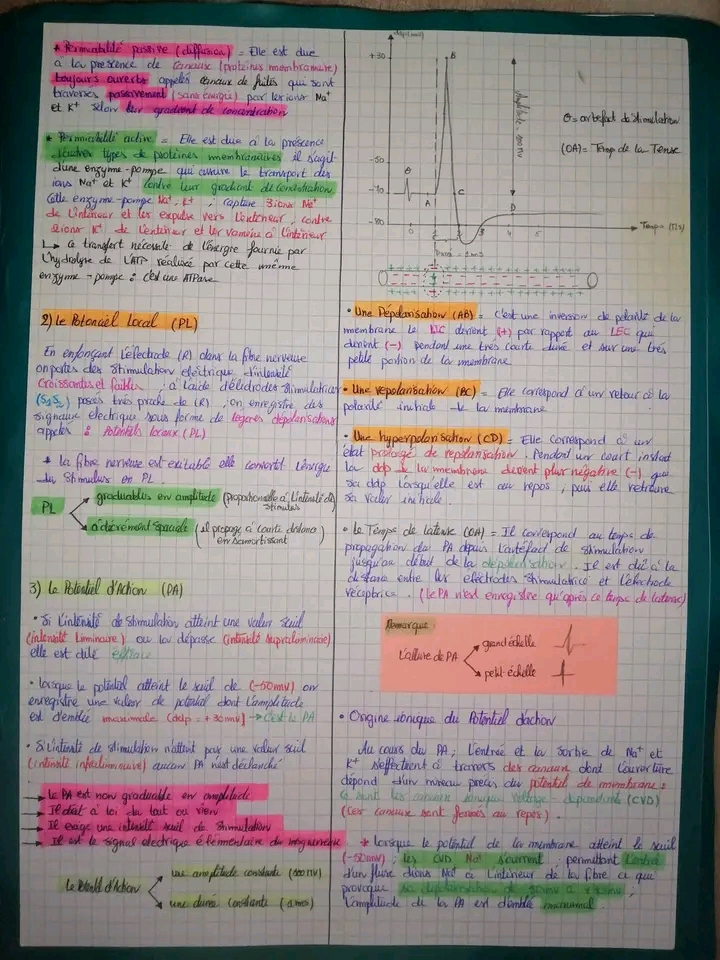 * Perméabilité passive (diffusion) = Elle est due
à la présence de canaux (protéines membranaire)
toujours ouverts appelés canaux de fuites qui sont
traversés passivement (sans énergie) par les ions Na+
et K+ selon leur gradient de concentration
* Perméabilité active = Elle est due à la présence
d'autres types de protéines membranaires il s'agit
d'une enzyme-pompe qui assure le transport des
ions Na+ et K+ contre leur gradient de concentration
Cette enzyme-pompe Na+, K+ ; capture 3 ions Na+
de l'intérieur et les expulse vers l'extérieur, contre
2 ions K+ de l'extérieur et les ramène à l'intérieur
↳ ce transfert nécessite de l'énergie fournie par
l'hydrolyse de l'ATP réalisée par cette même
enzyme-pompe : c'est une ATPase
2) Le Potenciel Local (PL)
En enfonçant l'électrode (R) dans la fibre nerveuse
on portes des stimulation électrique d'intensité
Croissantes et faibles, à l'aide d'éléctrodes stimulatrices
(S1S2) posées très proche de (R) ; on enregistre, des
signaux electrique sous forme de légères dépolarisations
appelés : Potentiels locaux (PL)
* la fibre nerveuse est exitable elle convertit l'énergie
du Stimulus en PL
PL
graduables en amplitude (proportionnelle à l'intensité du
stimulus
à décrément spaciale (il propage à courte distance
en s'amortissant)
3) Le Potentiel d'Action (PA)
• Si l'intensité de stimulation atteint une valeur seuil
(intensité liminaire) ou la dépasse (intensité supraliminaire)
elle est dite efficace
• Lorsque le potentiel atteint le seuil de (-50mv) on
enregistre une valeur de potentiel dont l'amplitude
est d'emblée maximale (ddp = +30mv) → c'est le PA
• Si l'intensité de stimulation n'atteint pas une valeur seuil
(intensité infraliminaire) aucun PA n'est déclanché
→ Le PA est non graduable en amplitude
→ Il obéit à loi du tout ou rien
→ Il exige une intensité seuil de stimulation
→ Il est le signal electrique élémentaire du
Le Potentiel d'Action
une amplitude constante (100mv)
une durée constante
ddp (mv)
+30
B
Amplitude = 100mv
θ = artefact de stimulation
(OA) = Temps de la Tense
-50
θ
-70
A
C
D
-80
Temps (ms)
0 1 2 3 4 5
• Une Dépolarisation (AB) = C'est une inversion de polarité de la
membrane le LIC devient (+) par rapport au LEC qui
devient (-) pendant une très courte durée et sur une très
petite portion de la membrane
• Une repolarisation (BC) = Elle correspond à un retour à la
polarité initiale de la membrane
• Une hyperpolarisation (CD) = Elle correspond à un
état prolongé de repolarisation. Pendant un court instant
la ddp de la membrane devient plus négative (-) que
sa ddp lorsqu'elle est au repos, puis elle retrouve
sa valeur initiale.
• Le Temps de latense (OA) = Il correspond au temps de
propagation du PA depuis l'artéfact de stimulation
jusqu'au début de la dépolarisation. Il est dû à la
distance entre les eléctrodes stimulatrice et l'électrode
réceptrice. (Le PA n'est enregistré qu'après ce temps de latense)
Remarque
L'allure de PA
grand échelle
petit échelle
• Origine ionique du Potentiel d'action
Au cours du PA ; l'entrée et la sortie de Na+ et
K+ s'effectuent à travers des canaux dont l'ouverture
dépend d'un niveau précis du potentiel de membrane :
ce sont les canaux ionique voltage-dépendants (CVD)
(ces canaux sont fermés au repos).
* Lorsque le potentiel de la membrane atteint le seuil
(-50mv) ; les CVD Na+ s'ouvrent, permettant l'entrée
d'un flux d'ions Na+ à l'intérieur de la fibre ce qui
provoque sa dépolarisation de
l'amplitude de la PA est d'emblée maximal